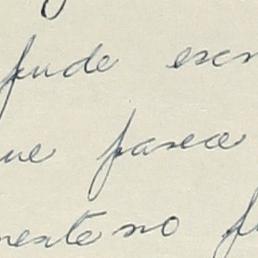 pude escr
ue parece
mente no f